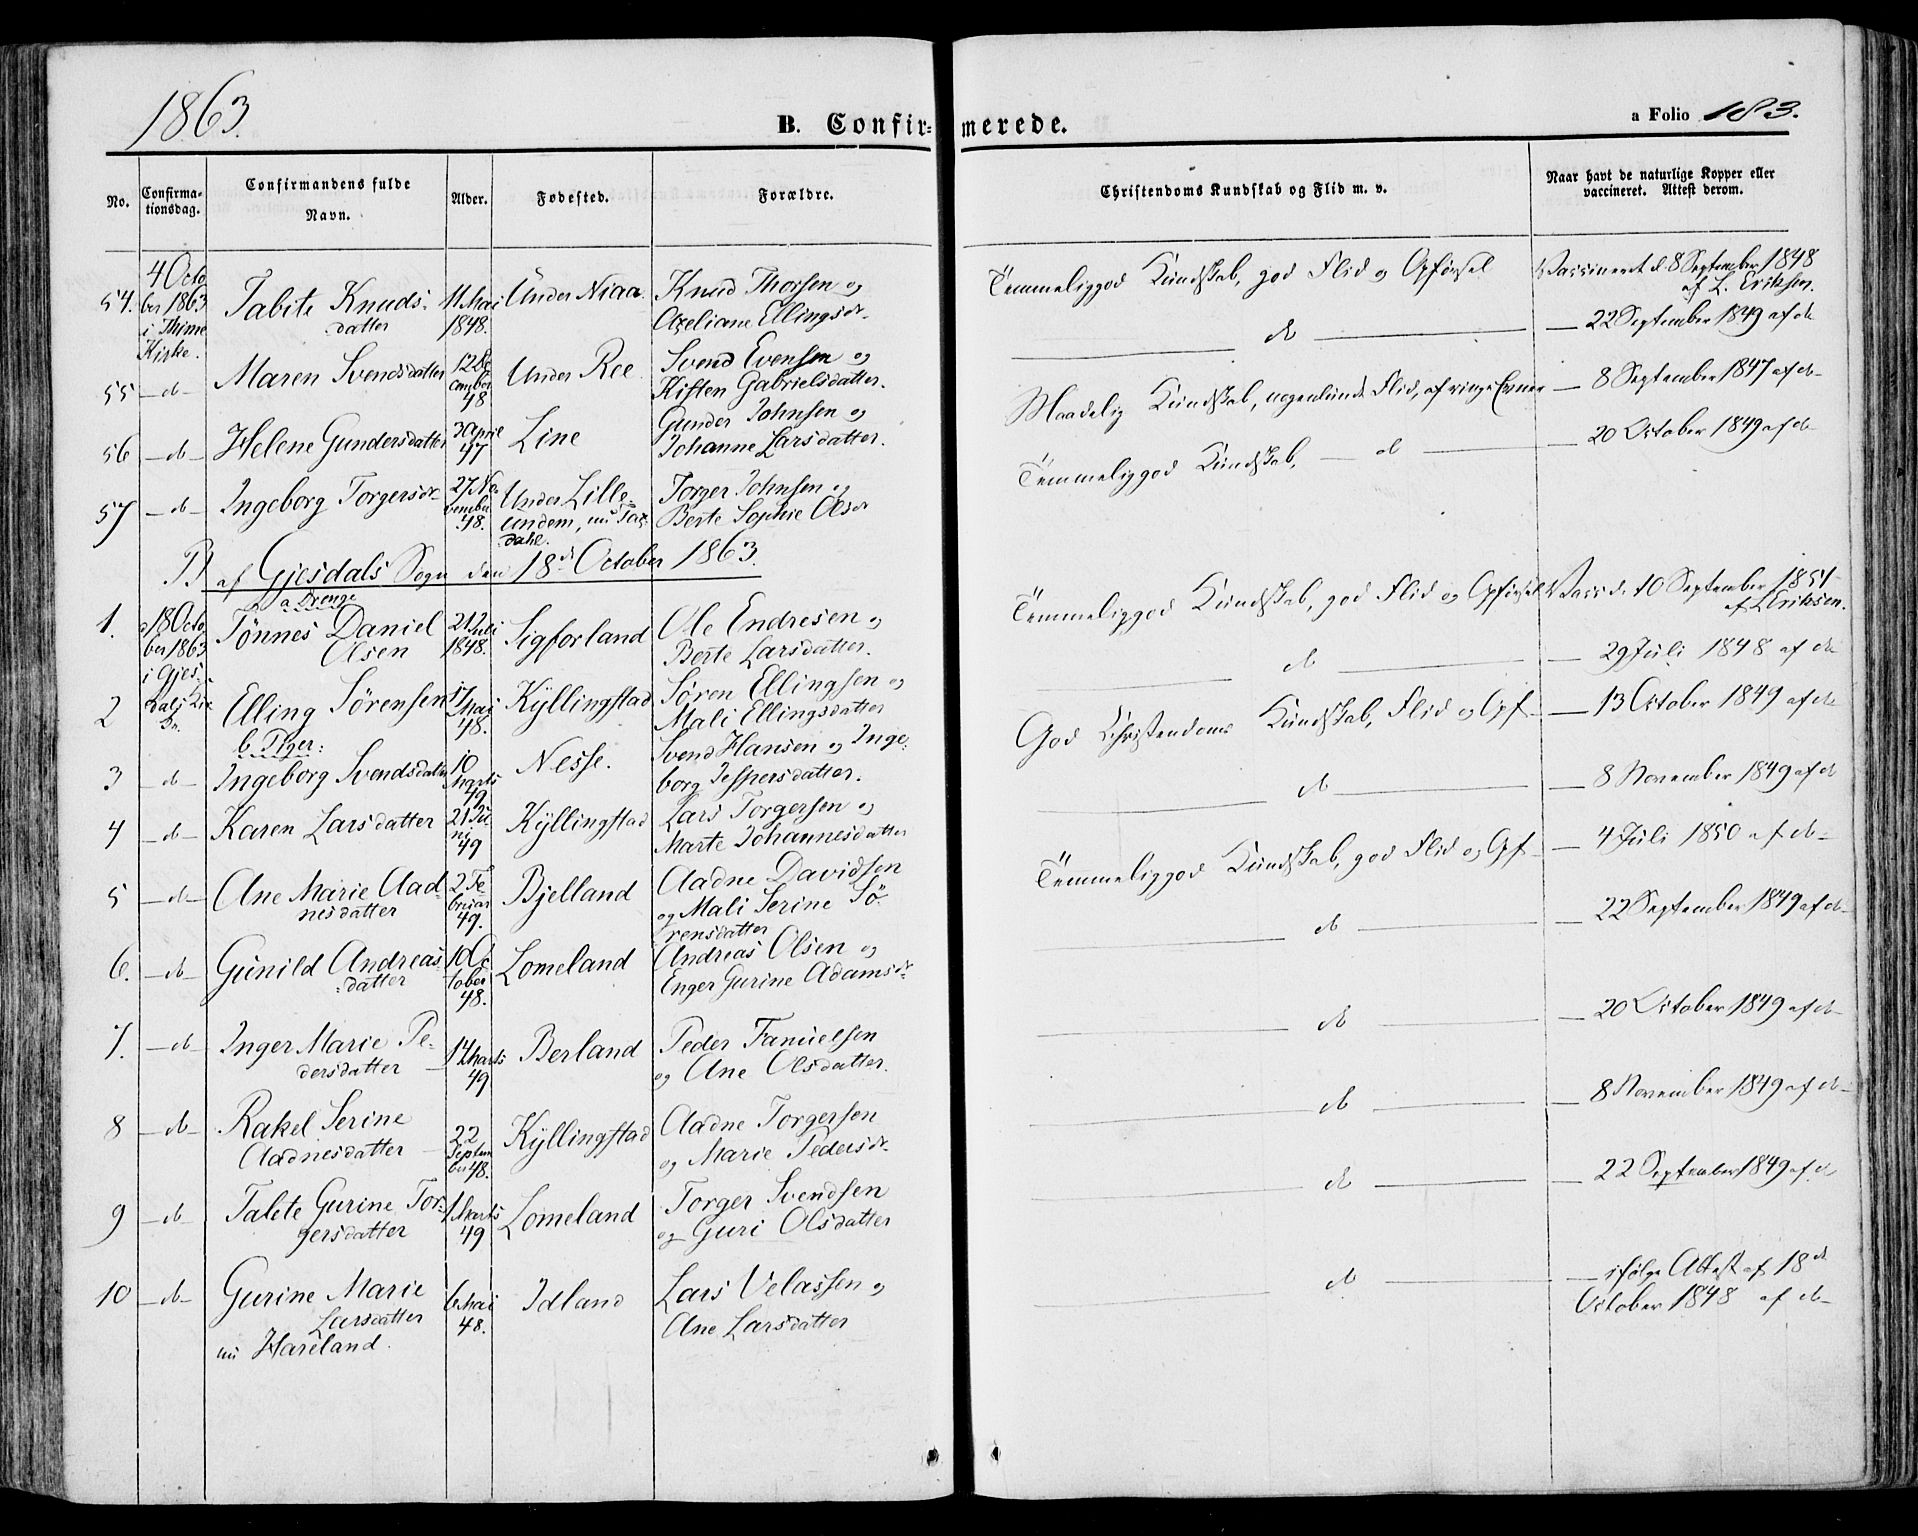 1863.
B. Confir=merede.
a Folio 183.
No.
Confirma-
tionsdag.
Confirmandens fulde
Navn.
Alder.
Fødested.
Forældre.
Christendoms Kundskab og Flid m. v.
Naar havt de naturlige Kopper eller
vaccineret. Attest derom.
54. 4 Octo
ber 1863
i Thime
Kirke.
Tabite Knuds-
datter
11 Mai
1848.
Under Niaa
Knud Thorsen og
Axeliane Ellingsdr.
Temmeliggod Kundskab, god Flid og Opførsel
Vaccineret d. 8 September 1848
af L. Eriksen.
55 — do — Maren Svendsdatter
12 De
cember
48
Under Ree
Svend Evensen og
Kisten Gabrielsdatter.
— do —
— 22 September 1849 af do
56 — do — Helene Gundersdatter
30 April
47
Line
Gunder Johnsen og
Johanne Larsdatter.
Maadelig Kundskab, nogenlunde Flid, af ringe Evner
— 8 September 1847 af do
57 — do — Ingeborg Torgersdr
27 No-
vember
48.
Under Lille-
undem, nu Tax-
dahl.
Torger Johnsen og
Berte Sophie Olsdr
Temmeliggod Kundskab, — do —
— 20 October 1849 af do
B af Gjesdals Sogn den 18de October 1863.
a. Drenge
1. 18 Octo
ber 1863
i Gjes-
dals Kir
ke.
Tønnes Daniel
Olsen
21 Juli
1848.
Sigforland
Ole Endresen og
Berte Larsdatter.
Temmeliggod Kundskab, god Flid og Opførsel
Vacc. d. 10 September 1851
af L. Eriksen.
2 Elling Sørensen
17 Mai
48.
Kyllingstad
Søren Ellingsen og
Mali Ellingsdatter
— do —
— 29 Juli 1848 af do
b. Piger:
3 — do — Ingeborg Svendsdatter
10
Marts
49
Nesse.
Svend Hansen og Inge-
borg Jespersdatter.
God Christendoms Kundskab, Flid og Opf.
— 13 October 1849 af do
4 — do — Karen Larsdatter
21 Ju
ni
49
Kyllingstad
Lars Torgersen og
Marte Johannesdatter
— do —
— 8 November 1849 af do
5 — do — Ane Marie Aad-
nesdatter
2 Fe-
bruar
49.
Bjelland
Aadne Davidsen
og Mali Serine Sø-
rensdatter
Temmeliggod Kundskab, god Flid og Opf.
— 4 Juli 1850 af do
6. — do — Gunild Andreas-
datter
10 Oc
tober
48.
Lomeland
Andreas Olsen og
Enger Gurine Adamsdr.
— do —
— 22 September 1849 af do
7. — do — Inger Marie Pe-
dersdatter
14 Marts
49
Berland
Peder Samuelsen
og Ane Olsdatter.
— do —
— 20 October 1849 af do
8 — do — Rakel Serine
Aadnesdatter
22
Septem
ber 48.
Kyllingstad
Aadne Torgersen
og Marie Pedersdr.
— do —
— 8 November 1849 af do
9 — do — Talete Gurine Tor-
gersdatter
1 Marts
49
Lomeland
Torger Svendsen
og Guri Olsdatter
— do —
— 22 September 1849 af do
10 — do — Gurine Marie
Larsdatter
nu Hareland.
6 Mai
48.
Idland
Lars Velassen og
Ane Larsdatter
— do —
— ifølge Attest af 18de
October 1848 af do